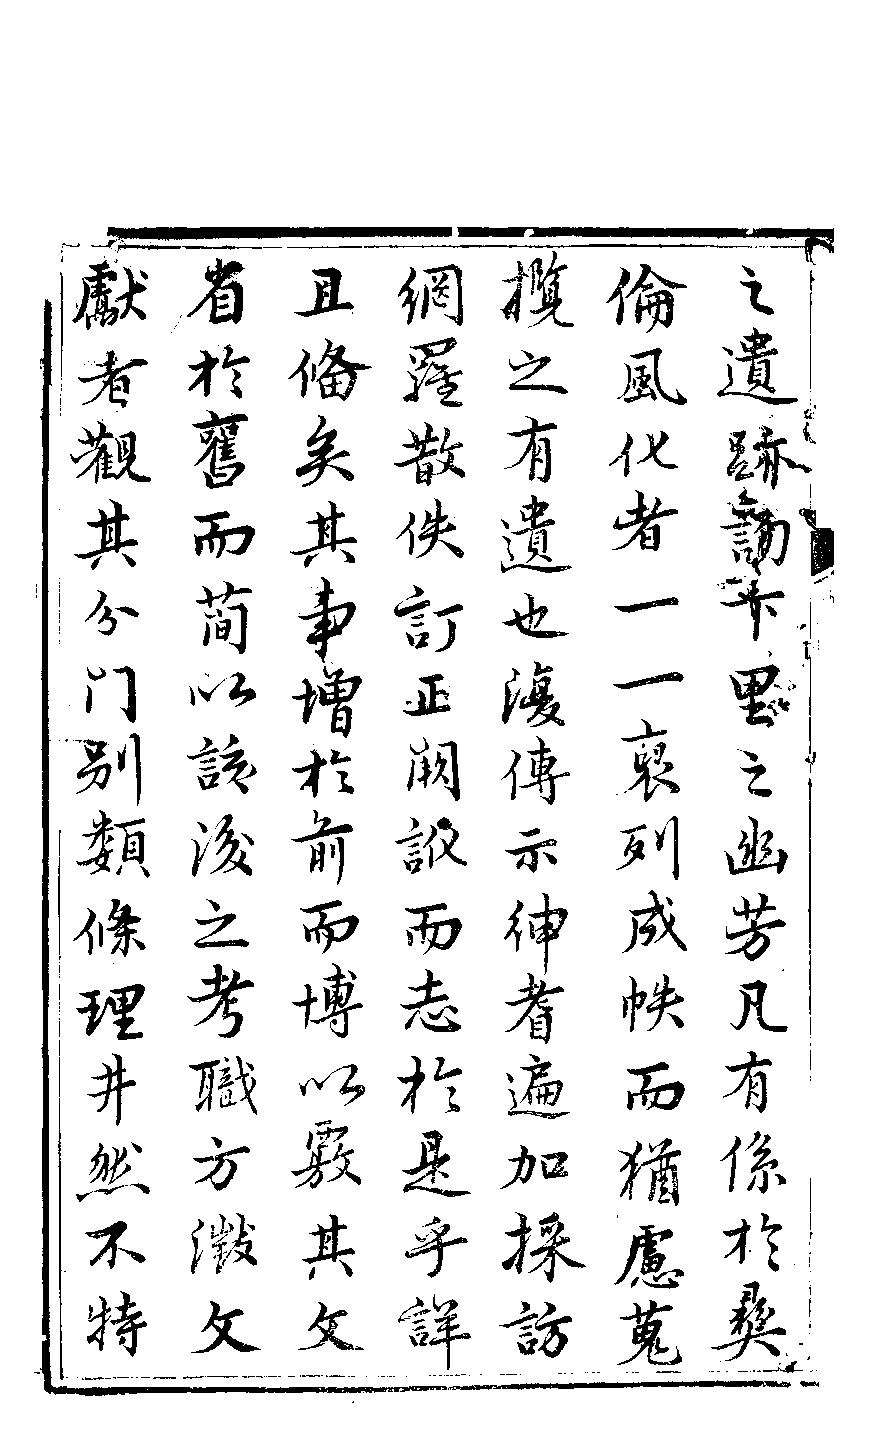 之遺跡蔀下里之幽芳凡有係於彝
倫風化者一一裒列成帙而猶慮蒐
攬之有遺也復傳示紳耆遍加採訪
網羅散佚訂正闕訛而志於是乎詳
且備矣其事增於前而博以覈其文
省於舊而簡以該後之考職方徵文
獻者觀其分門別類條理井然不特